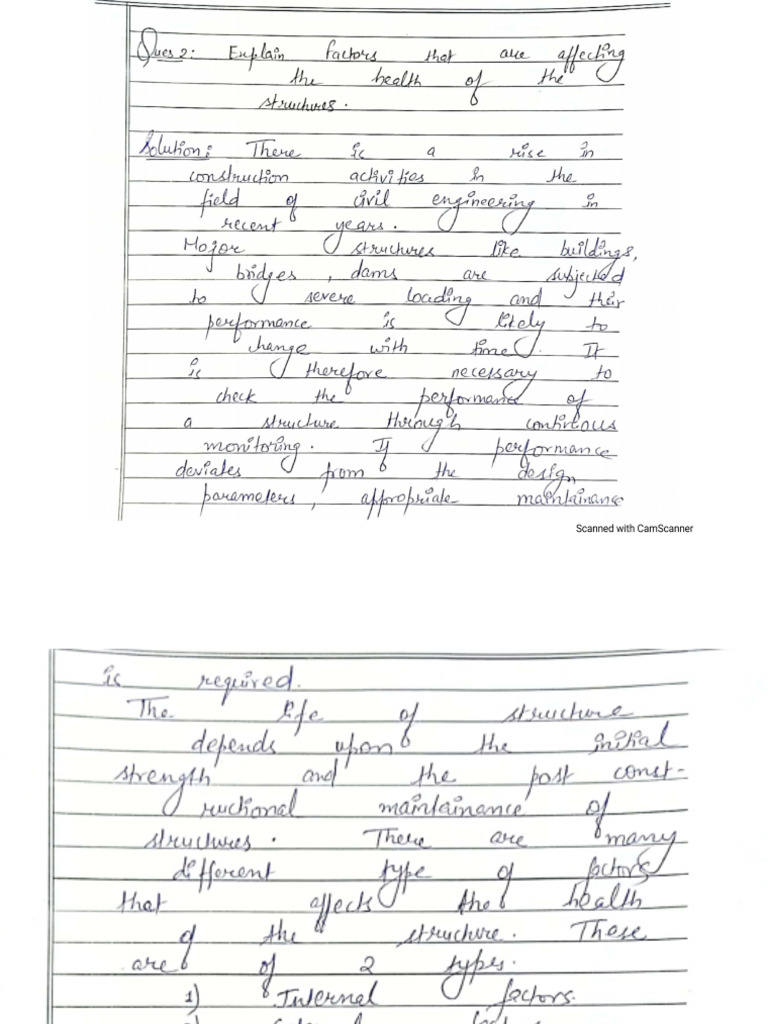 Ques 2: Explain factors that are affecting
the health of the
structures.
Solution: There is a rise in
construction activities in the
field of civil engineering in
recent years.
Major structures like buildings,
bridges, dams are subjected
to severe loading and their
performance is likely to
change with time. It
is therefore necessary to
check the performance of
a structure through continous
monitoring. If performance
deviates from the design
parameters, appropriate maintainance
Scanned with CamScanner
is required.
The life of structure
depends upon the initial
strength and the post const-
ructional maintainance of
structures. There are many
different type of factors
that affects the health
of the structure. These
are of 2 types.
1) Internal factors.